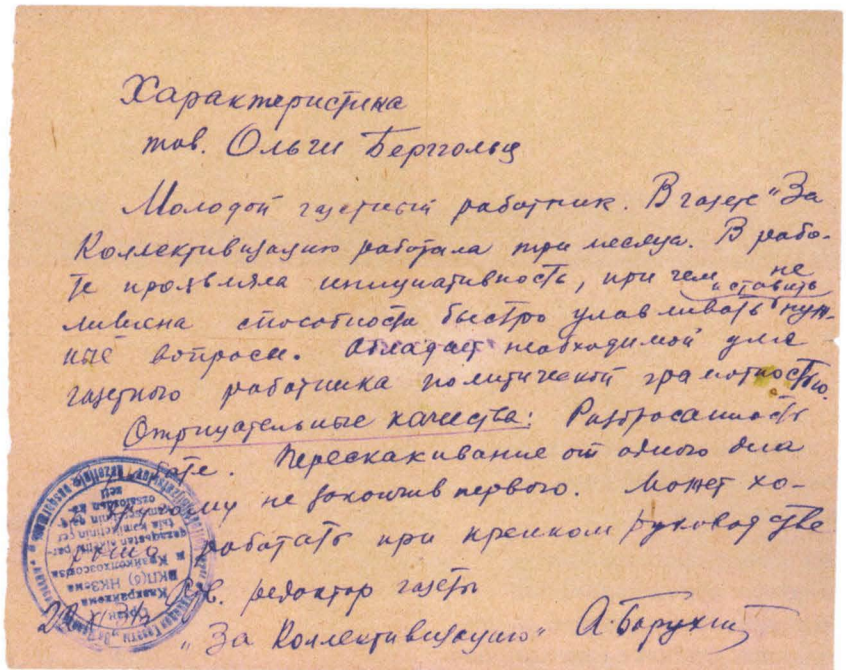 Характеристика
тов. Ольги Берггольц
Молодой газетный работник. В газете "За
Коллективизацию работала три месяца. В рабо-
те проявляла инициативность, при чем не
лишена способности быстро улавливать и ставить нуж-
ные вопросы. Обладает необходимой для
газетного работника политической грамотностью.
Отрицательные качества: Разбросанность
в работе. Перескакивание от одного дела
к другому не закончив первого. Может хо-
рошо работать при крепком руководстве
Отв. редактор газеты
"За Коллективизацию" А. Барухит
Орган
Казкрайкома
ВКП(б) НКЗема
и Крайколхозсоюза